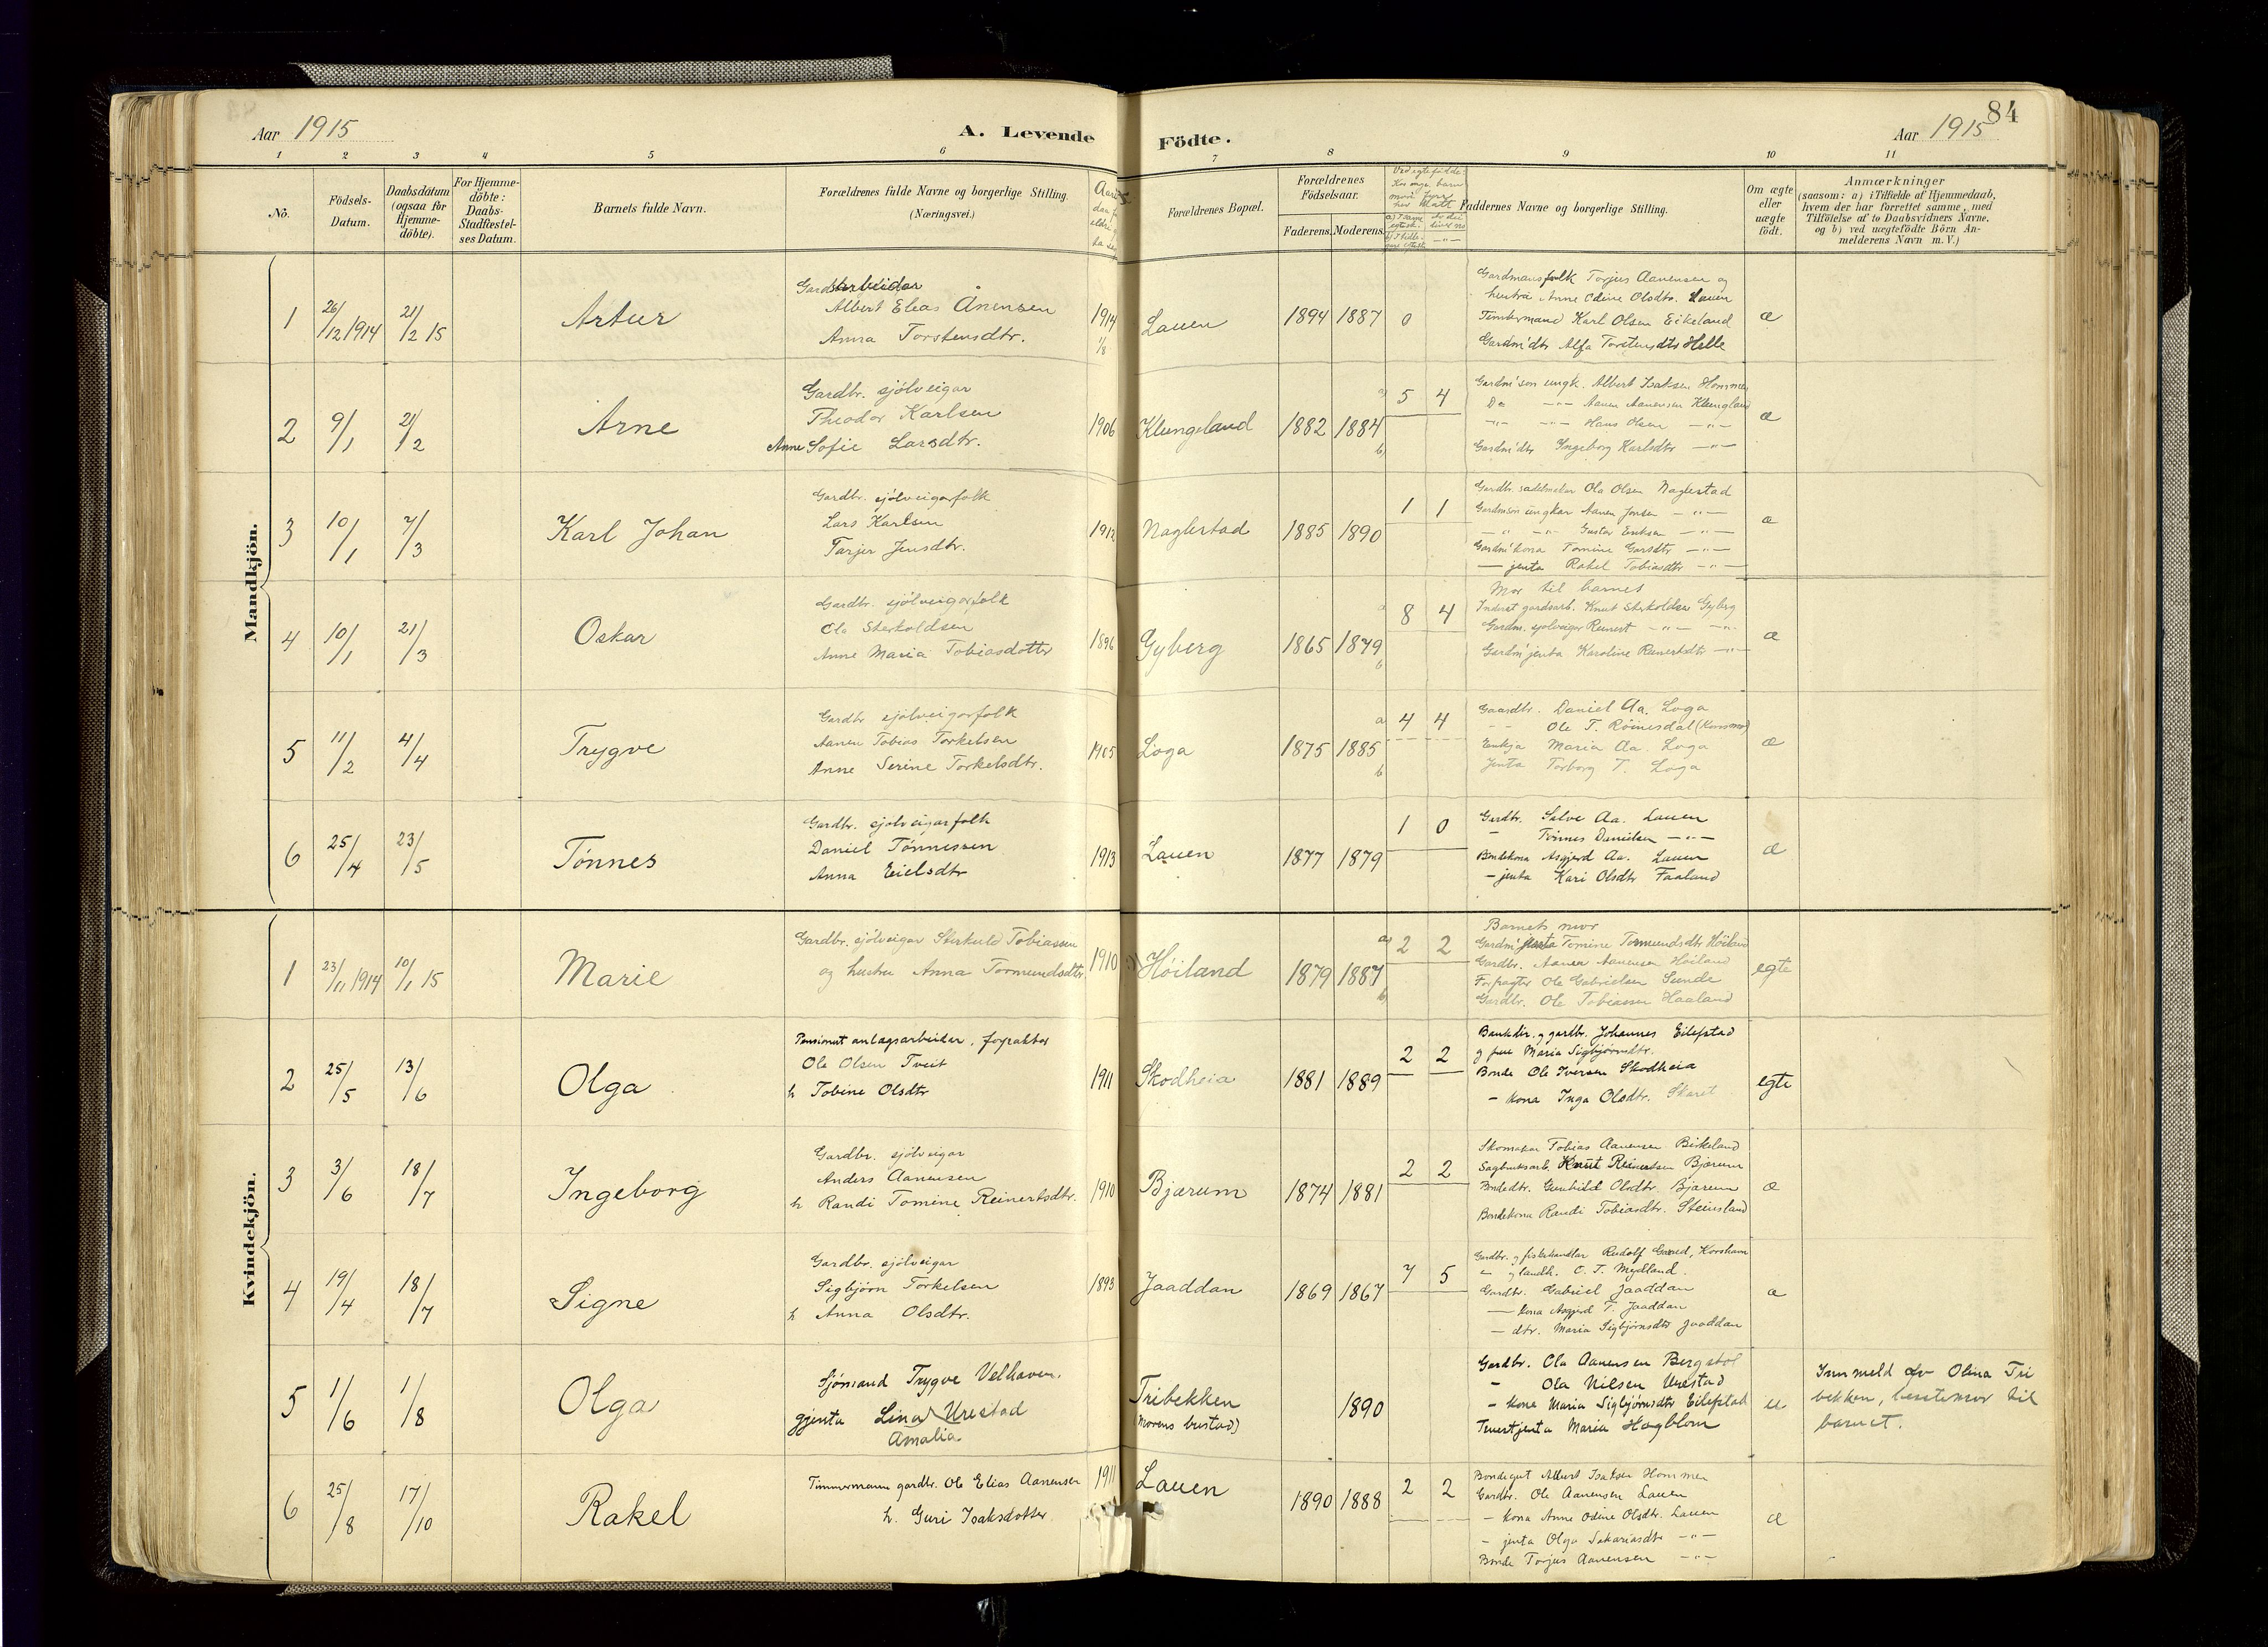 84
Aar 1915
A. Levende Födte.
Aar 1915
1 2 3 4 5 6 7 8 9 10 11
No.
Födsels-Datum.
Daabsdatum (ogsaa för Hjemme-döbte).
For Hjemme-döbte: Daabs-Stadfæstel-ses Datum.
Barnets fulde Navn.
Forældrenes fulde Navne og borgerlige Stilling.
(Næringsvei.)
Forældrenes Bopæl.
Forældrenes Födselsaar.
Faderens. Moderens.
Faddernes Navne og borgerlige Stilling.
Om ægte eller uægte födt.
Anmærkninger
(saasom: a) i Tilfælde af Hjemmedaab,
hvem der har forrettet samme, med
Tilföielse af to Daabsvidners Navne.
og b) ved uægtefödte Börn An-
melderens Navn m. V.)
Mandkjön.
1 26/12 1914 21/2 15 Artur
Gardsarbeidar
Albert Elias Ånensen
Anna Torstensdtr.
1914 1/8 Lauen 1894 1887 0
Gardmansfolk Torjus Aanensen og
hustru Anne Odine Olsdtr. Lauen
Timbermand Karl Olsen Eikeland
Gardm'dtr Alfa Torstensdtr Helle
æ
2 9/1 21/2 Arne
Gardbr. sjölveigar
Theodor Karlsen
Anne Sofie Larsdtr.
1906 Klungeland 1882 1884 a) 5 4 b)
Gardm'son ungk. Albert Isaksen Hommen
Do —"— Aanen Aanensen Klungland
—"— —"— Hans Olsen —"—
Gardm'dtr Ingeborg Karlsdtr —"—
æ
3 10/1 7/3 Karl Johan
Gardbr. sjölveigarfolk
Lars Karlsen
Tarjer Jensdtr.
1912 Naglestad 1885 1890 1 1
Gardbr. sadelmakar Ola Olsen Naglestad
Gardmson ungkar Aanen Jensen —"—
—"— —"— Gustav Eriksen —"—
Gardm'kona Tomine Garsdtr —"—
— jenta Rakel Tobiasdtr —"—
æ
4 10/1 21/3 Oskar
Gardbr. sjölveigarfolk
Ola Sterkoldsen
Anne Maria Tobiasdotter
1896 Gyberg 1865 1879 a 8 4 b
Mor til barnet
Inderst gardsarb. Knut Sterkoldsen Gyberg
Gardm. sjolveigar Reinert —"— —"—
Gardm'jenta Karoline Reinertsdtr —"—
æ
5 11/2 4/4 Trygve
Gardbr sjölveigarfolk
Aanen Tobias Torkelsen
Anne Serine Torkelsdtr.
1905 Loga 1875 1885 a 4 4 b
Gaardbr. Daniel Aa. Loga
- - Ole T. Röinesdal (Kornmo)
Enkja Maria Aa. Loga
Jenta Torborg T. Loga
æ
6 25/4 23/5 Tönnes
Gardbr. sjolveigarfolk
Daniel Tönnessen
Anna Eielsdtr
1913 Lauen 1877 1879 1 0
Gardbr. Salve Aa. Lauen
- Tönnes Danielsen —"—
Bondekona Asgjerd Aa. Lauen
- jenta Kari Olsdtr Faaland
æ
Kvindekjön.
1 23/11 1914 10/1 15 Marie
Gardbr. sjölveigar Sterkuld Tobiassen
og hustru Anna Tormundsdtr
1910 Höiland 1879 1887 a) 2 2 b)
Barnets mor
Gardm'jenta Tomine Tormundsdtr Höiland
Gardbr. Aanen Aanensen Höiland
Forpagter Ole Gabrielsen Sunde
Gardbr. Ole Tobiassen Haaland
egte
2 25/5 13/6 Olga
Pensionert anlagsarbeidar, forpaktar
Ole Olsen Tveit
h Tobine Olsdtr
1911 Skodheia 1881 1889 2 2
Bankdir. og gardbr. Johannes Eilefstad
og frue Maria Sigbjörnsdtr.
Bonde Ole Iversen Skodheia
- kona Inga Olsdtr. Skaret
egte
3 3/6 18/7 Ingeborg
Gardbr. sjölveigar
Anders Aanensen
h Randi Tomine Reinertsdtr.
1910 Bjærum 1874 1881 2 2
Skomakar Tobias Aanensen Birkeland
Sagbruksarb. Knut Reinertsen Bjærum
Bondedtr. Gunhild Olsdtr. Bjærum
Bondekona Randi Tobiasdtr. Steinsland
æ
4 19/4 18/7 Signe
Gardbr. sjölveigar
Sigbjörn Torkelsen
h Anna Olsdtr.
1893 Jaaddan 1869 1867 7 5
Gardbr. og fiskehandlar Rudolf Grøsed, Korshamn
- og landh. O. T. Mydland.
Gardbr. Gabriel Jaaddan
— kona Asgjerd T. Jaaddan
— dtr. Maria Sigbjörnsdtr Jaaddan
æ
5 1/6 1/8 Olga
Sjömand Trygve Velhaven.
gjenta Lina Urestad
Amalia
Tribekken
(Morens bustad)
1890
Gardbr. Ola Aanensen Bergstøl
- Ola Nilsen Urestad
- kone Maria Sigbjörnsdtr Eilefstad
Tenestjenta Maria Hagblom
u
Innmeld av Olina Tri
bekken, bestemor til
barnet.
6 25/8 17/10 Rakel
Timmermann gardbr. Ole Elias Aanensen
h. Guri Isaksdotter.
1911 Lauen 1890 1888 2 2
Bondegut Albert Isaksen Hommen
Gardbr. Ole Aanensen Lauen
- kona Anne Odine Olsdtr. Lauen
- jenta Olga Sakariasdtr —"—
Bonde Torjus Aanensen —"—
æ